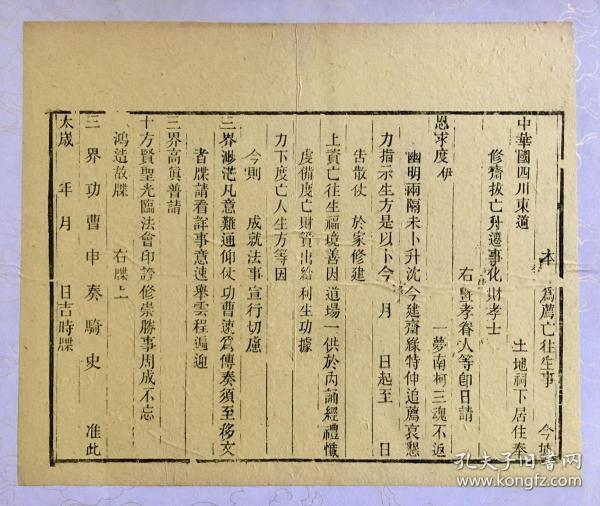 本 爲薦亡往生事 今據
中華國四川東道 土地祠下居住奉
修齋拔亡升遷事化財孝士
右曁孝眷人等卽日請
恩求度 伊 一夢南柯三魂不返
幽明兩隔未卜升沈今建齋緣特伸追薦哀懇
力指示生方是以卜今 月 日起至 日
告散仗 於家修建
上資亡往生福境善因道場一供於內誦經禮懺
虔備度亡財質出給利生功據
力下度亡人生方等因
今則 成就法事宣行切慮
三界渺茫凡意難通仰仗功曹速爲傳奏須至移文
者牒請看詳事意速舉雲程遍迎
三界高眞普請
十方賢聖光臨法會印證修崇勝事周成不忘
鴻造故牒 右牒上
三界功曹申奏騎史 准此
太歲 年 月 日吉時牒
孔夫子旧书网
www.kongfz.com